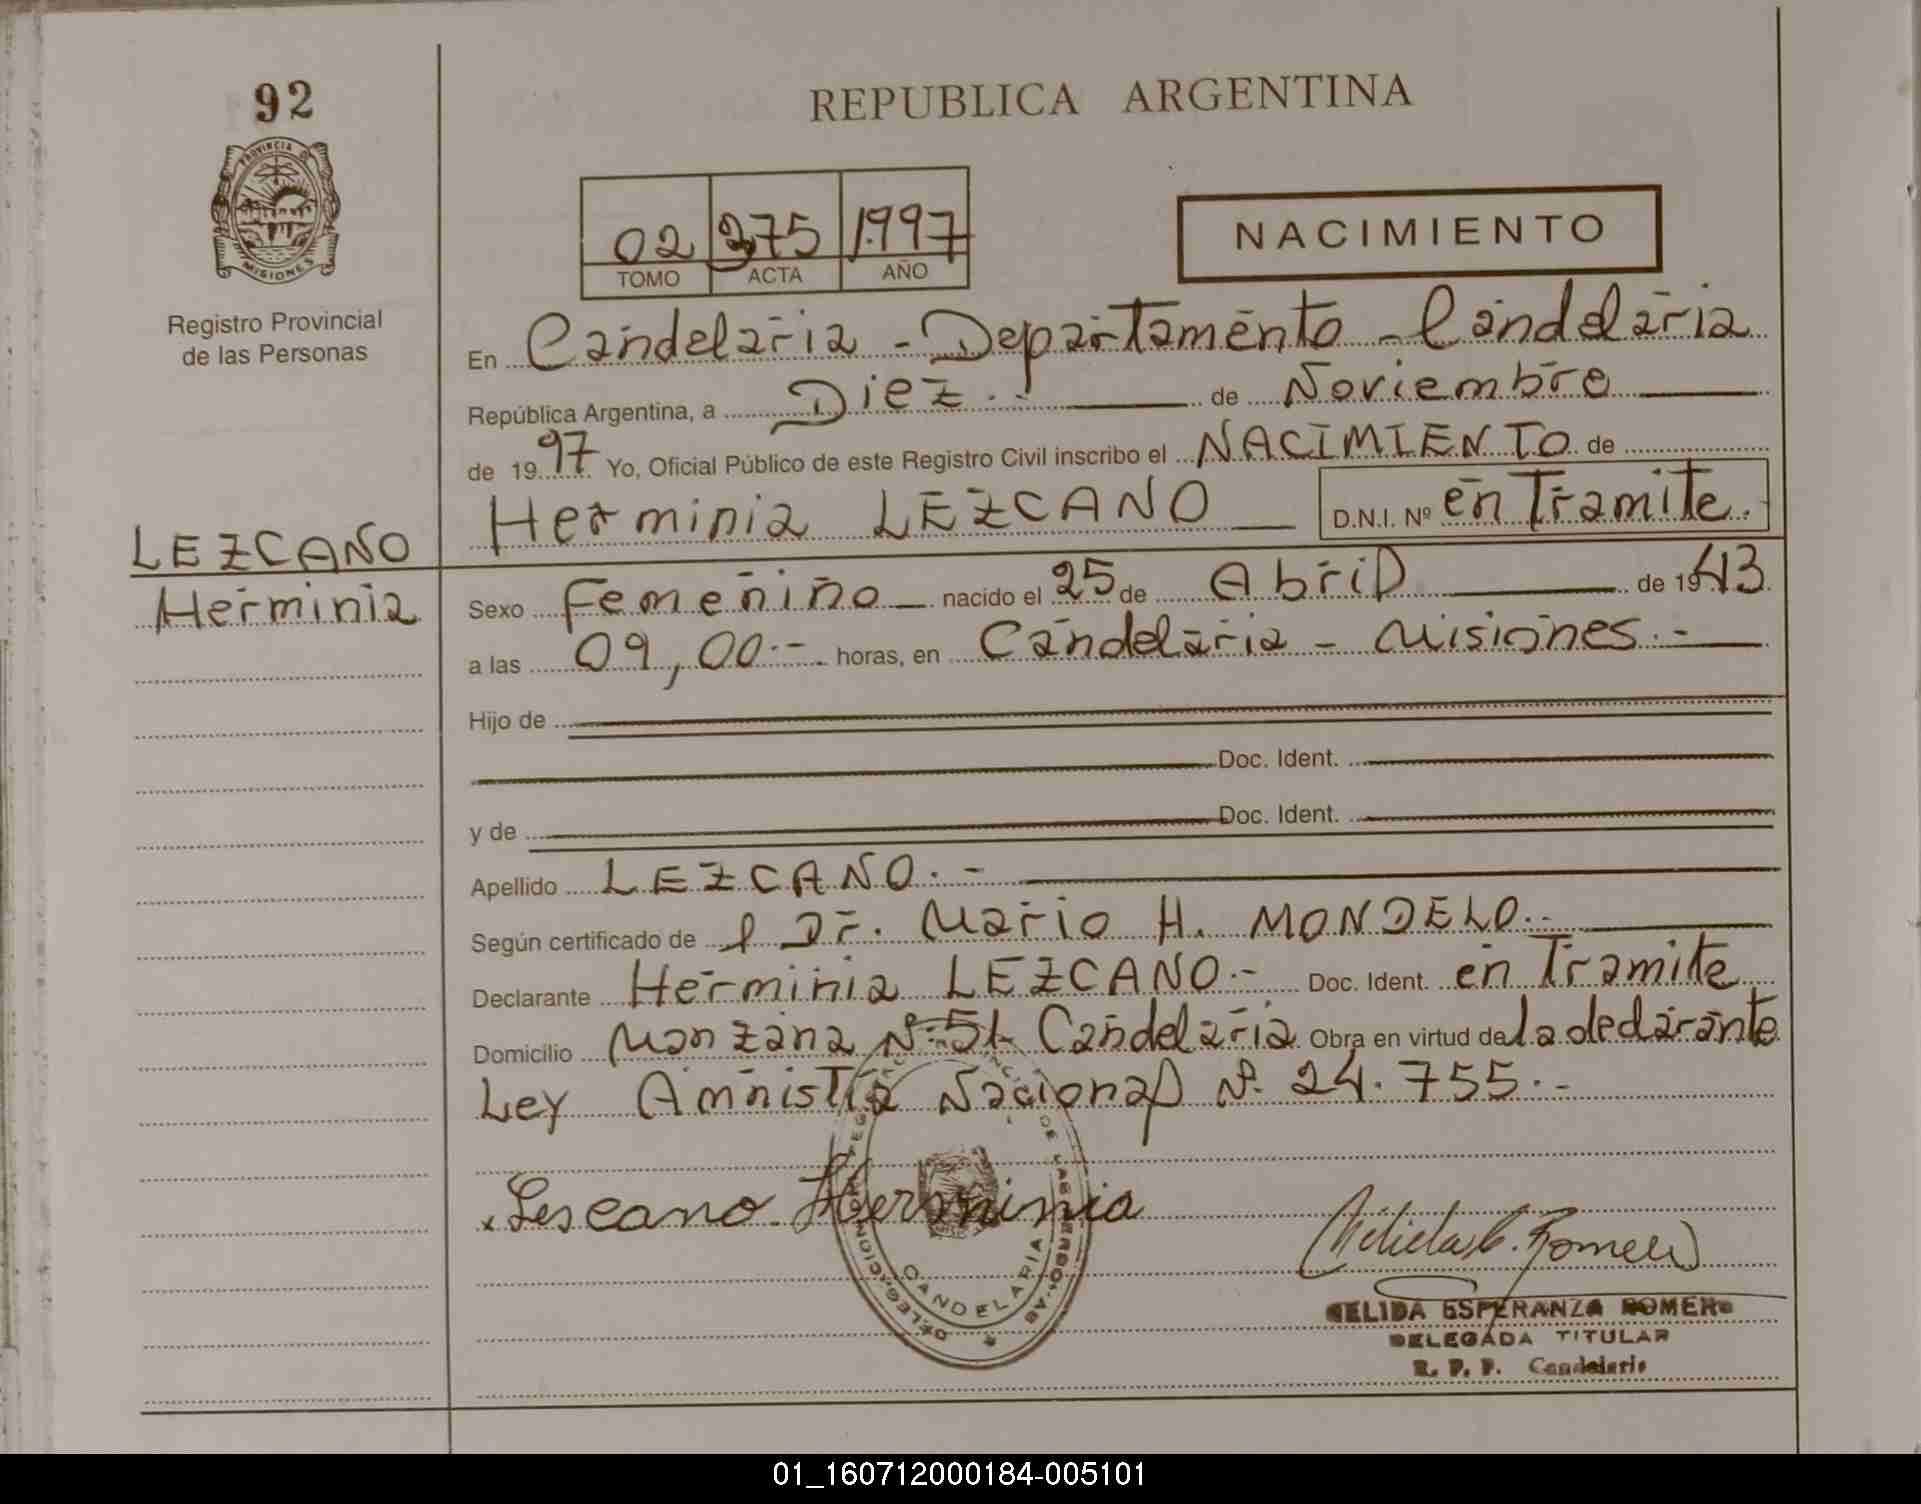 92
PROVINCIA DE
MISIONES
Registro Provincial
de las Personas
REPUBLICA ARGENTINA
02 375 1997
TOMO ACTA AÑO
NACIMIENTO
En Candelaria - Departamento - Candelaria
República Argentina, a Diez.- de Noviembre
de 1997 Yo, Oficial Público de este Registro Civil inscribo el NACIMIENTO de
Herminia LEZCANO D.N.I. Nº en Tramite.
LEZCANO
Herminia
Sexo Femenino nacido el 25 de Abril de 1943
a las 09,00.- horas, en Candelaria - Misiones.-
Hijo de
Doc. Ident.
y de Doc. Ident.
Apellido LEZCANO.-
Según certificado de l Dr. Mario H. MONDELO.-
Declarante Herminia LEZCANO.- Doc. Ident. en Tramite
Domicilio Manzana Nº 51- Candelaria Obra en virtud de la declarante
Ley Amnistia Nacional Nº 24.755.-
x Lescano Herminia
DELEGACION
CANDELARIA
Romero
CELIDA ESPERANZA ROMERO
DELEGADA TITULAR
R. P. P. Candelaria
01_160712000184-005101